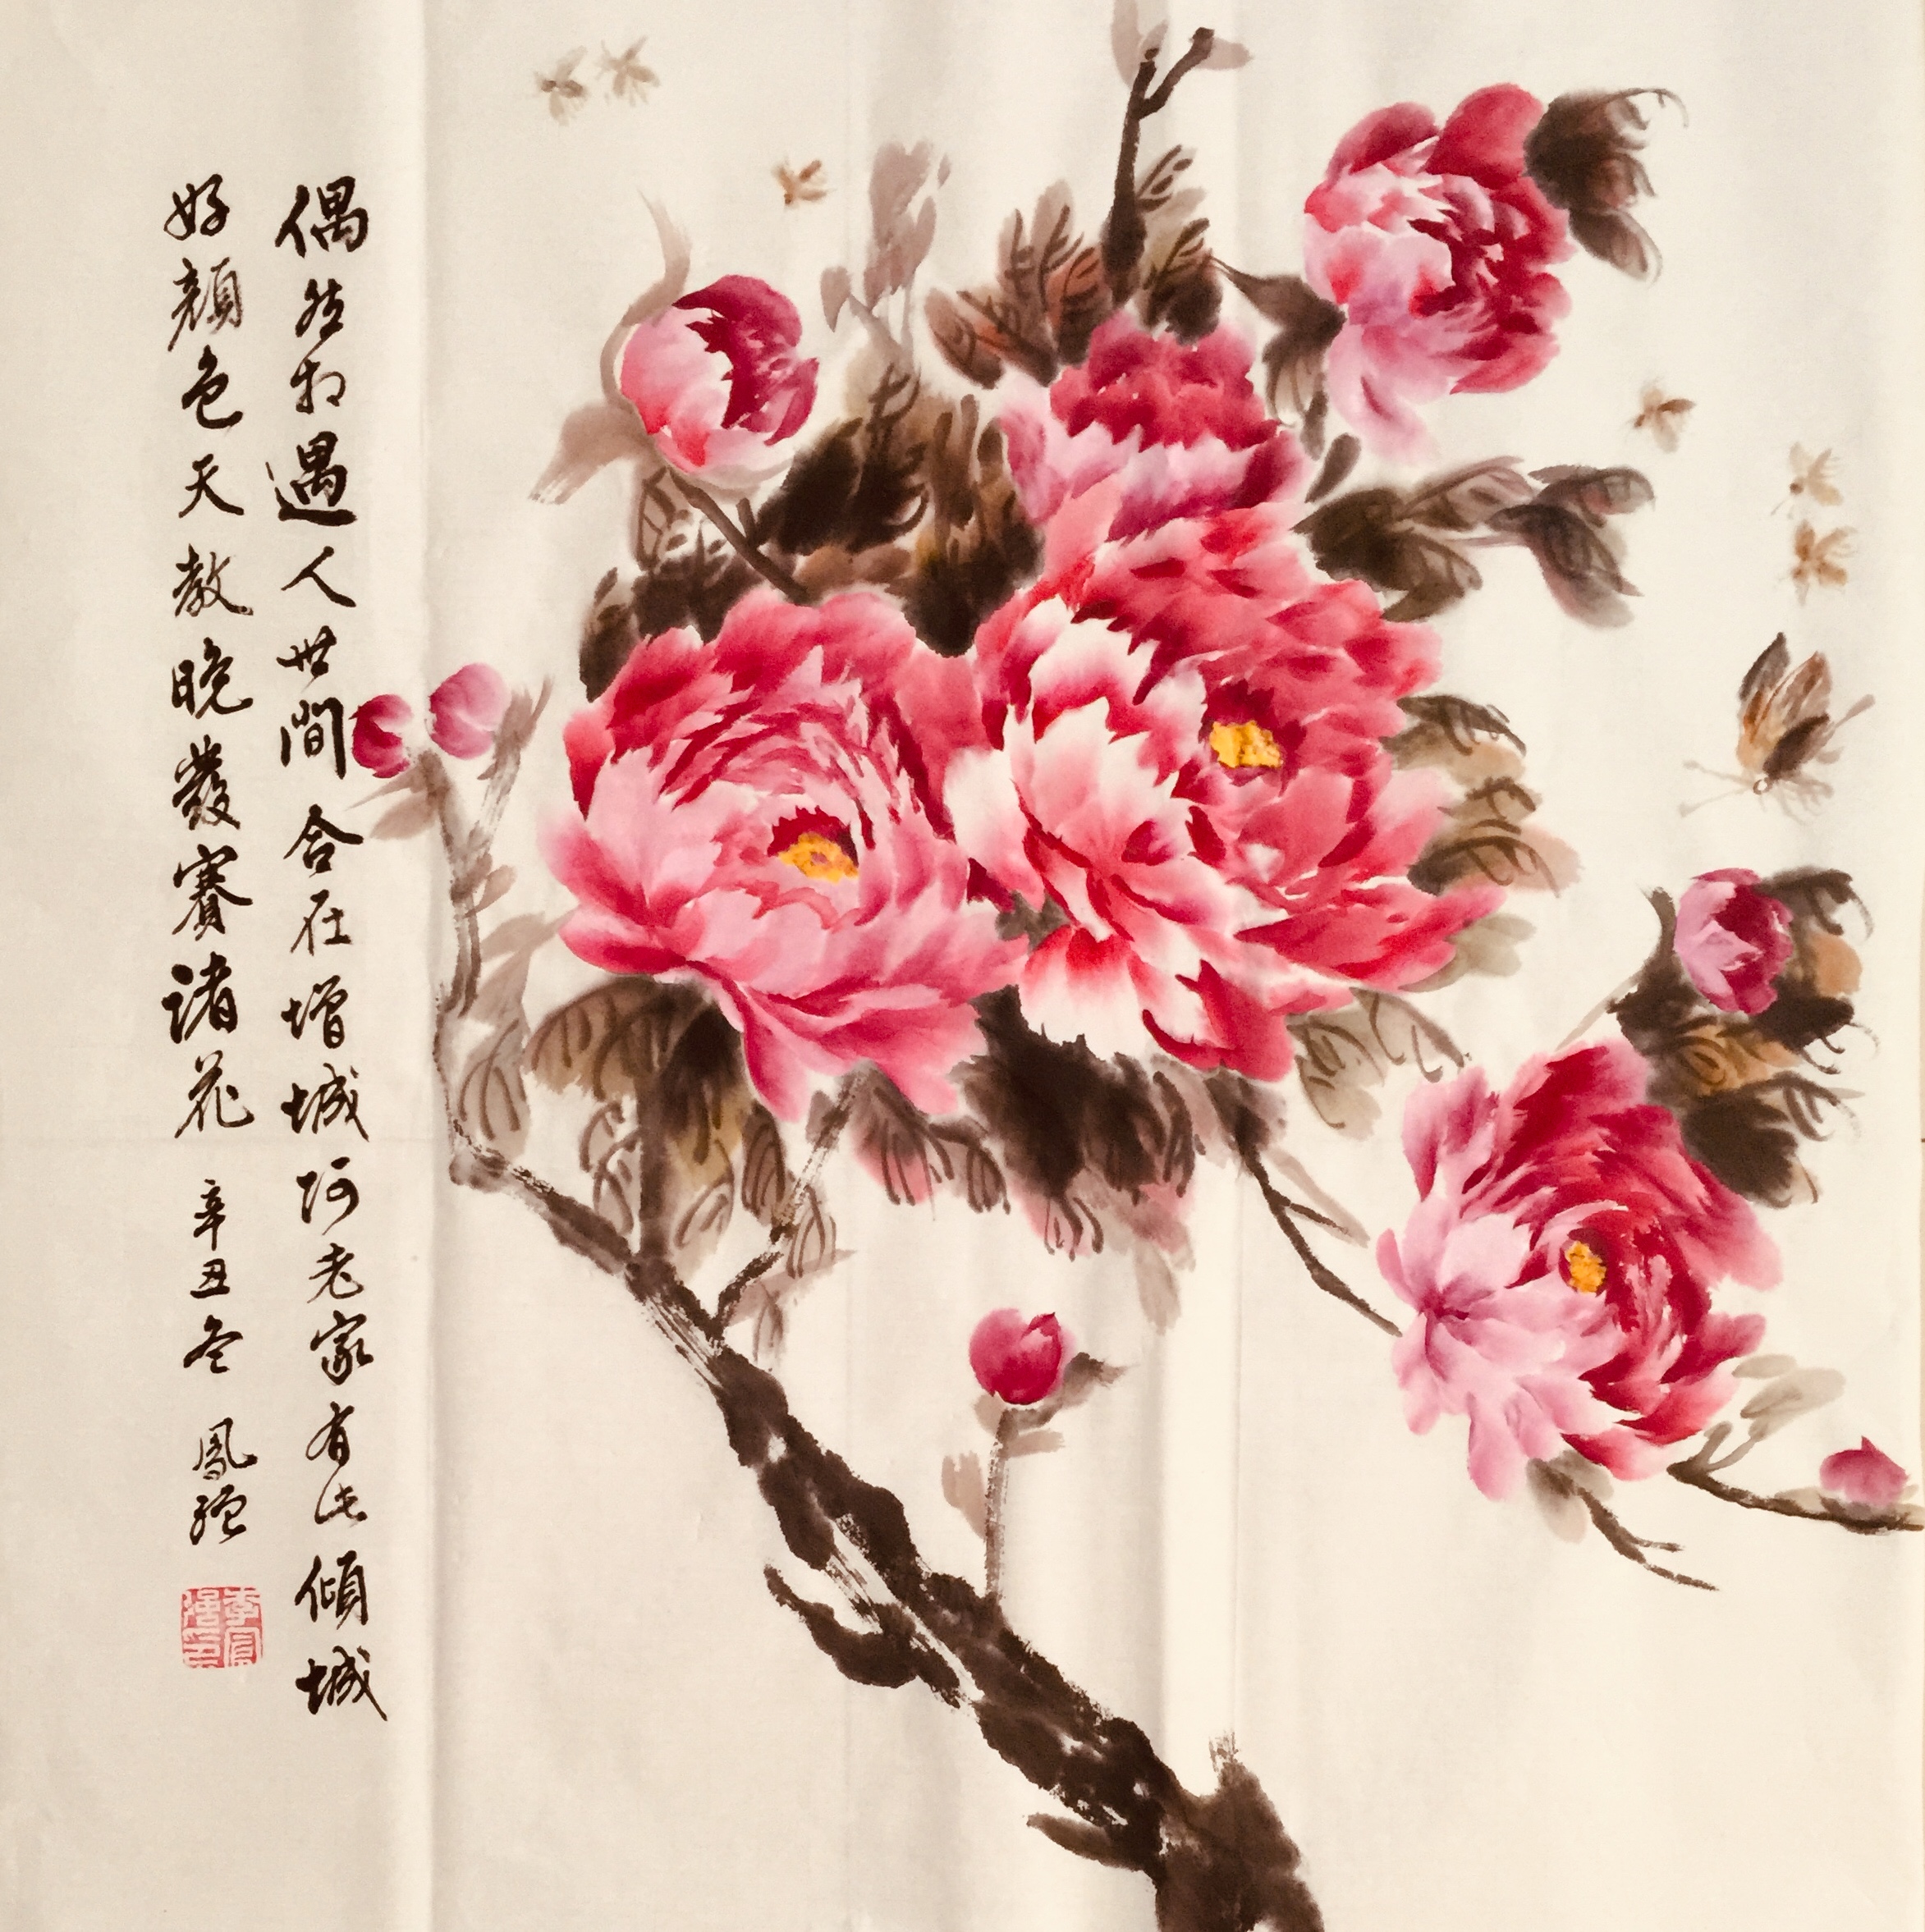 偶然相遇人世間合在增城阿老家有此傾城
好顏色天教晚發賽諸花 辛丑冬 鳳強
季鳳強印